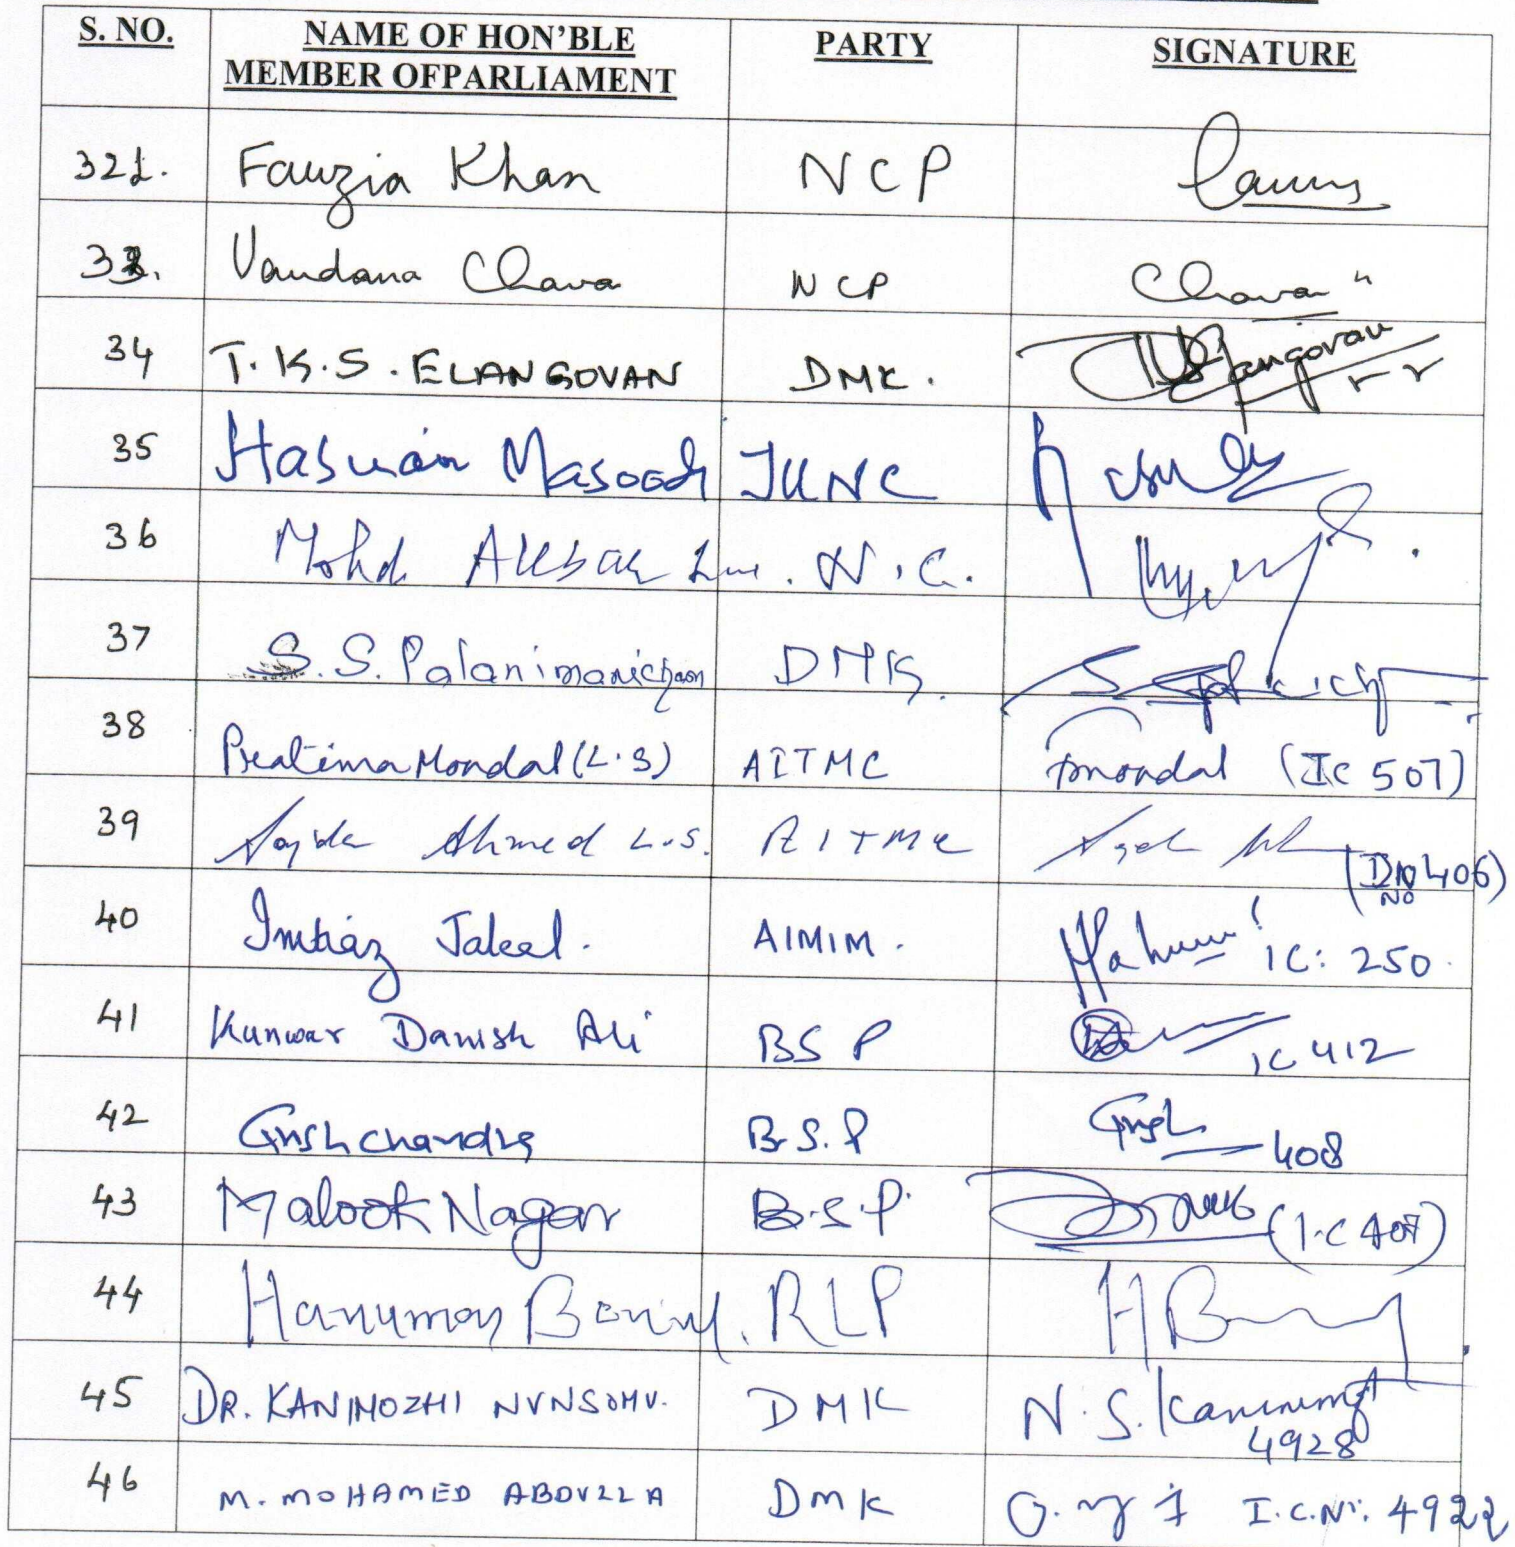 S. NO. NAME OF HON'BLE MEMBER OFPARLIAMENT PARTY SIGNATURE
32. Fauzia Khan NCP
33. Vandana Chava NCP Chavan
34 T.K.S. ELANGOVAN DMK. TKS Elangovan
35 Hasnain Masoodi JKNC
36 Mohd Akbar Lone. N.C.
37 S.S. Palanimanickam DMK.
38 Pratima Mondal (L.S) AITMC Pmondal (IC 507)
39 Sajda Ahmed L.S. AITMC (DN NO 406)
40 Imtiaz Jaleel. AIMIM. IC: 250.
41 Kunwar Danish Ali BSP IC 412
42 Girish Chandra B.S.P Girish 408
43 Malook Nagar B.S.P. (I.C 407)
44 Hanuman Beniwal. RLP
45 DR. KANIMOZHI NVNSOMU. DMK N.S. Kanimozhi 4928
46 M. MOHAMED ABDULLA DMK I.C.No: 4922